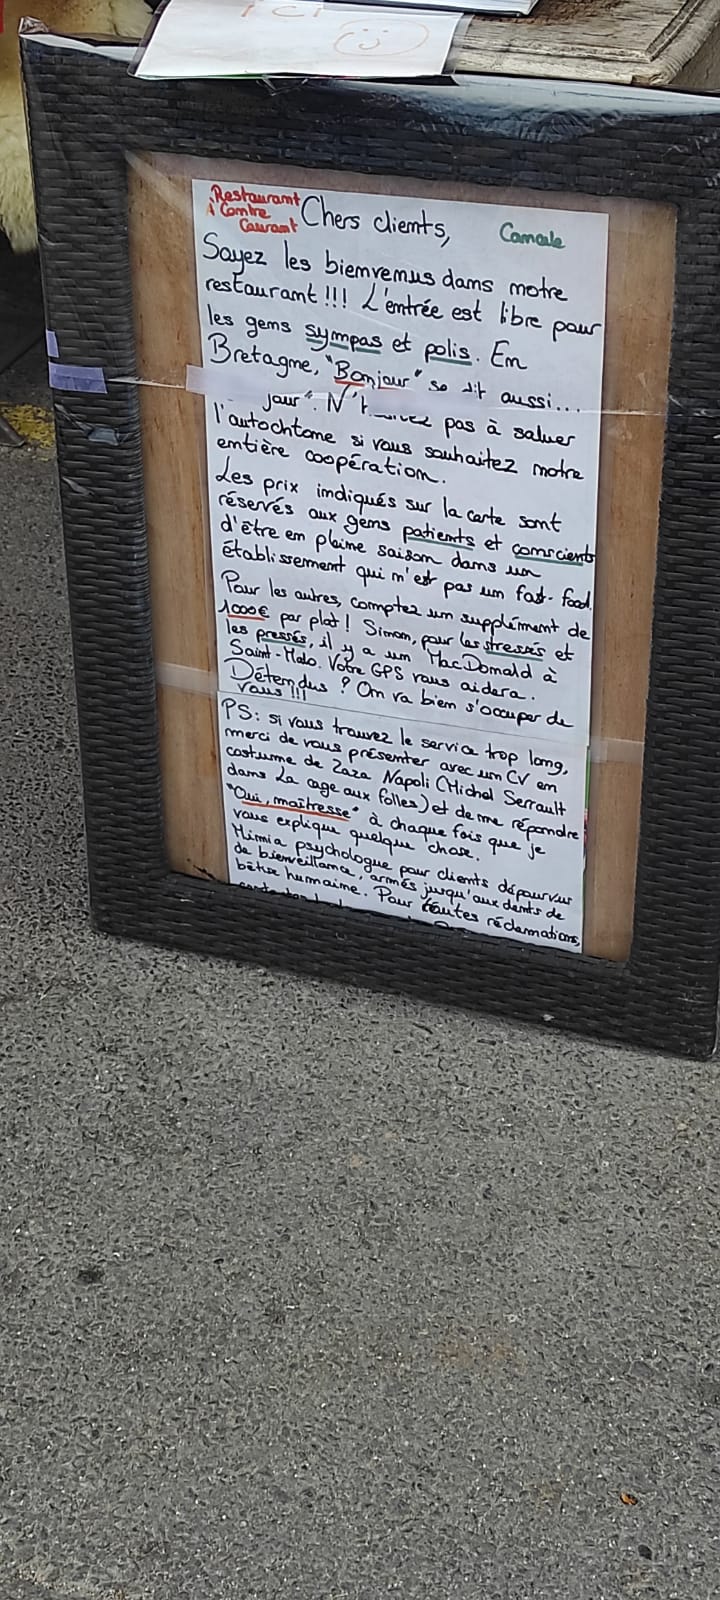 ici
Restaurant
à Contre
Courant
Chers clients,
Cancale
Soyez les bienvenus dans notre
restaurant !!! L'entrée est libre pour
les gens sympas et polis. En
Bretagne, "Bonjour" se dit aussi...
jour". N'hésitez pas à saluer
l'autochtone si vous souhaitez notre
entière coopération.
Les prix indiqués sur la carte sont
réservés aux gens patients et conscients
d'être en pleine saison dans un
établissement qui n'est pas un fast-food.
Pour les autres, comptez un supplément de
1000€ par plat ! Sinon, pour les stressés et
les pressés, il y a un MacDonald à
Saint-Malo. Votre GPS vous aidera.
Détendus ? On va bien s'occuper de
vous !!!
PS : si vous trouvez le service trop long,
merci de vous présenter avec un CV en
costume de Zaza Napoli (Michel Serrault
dans La cage aux folles) et de me répondre
"Oui, maîtresse" à chaque fois que je
vous explique quelque chose.
Mimia psychologue pour clients dépourvus
de bienveillance, armés jusqu'aux dents de
bêtise humaine. Pour toutes réclamations,